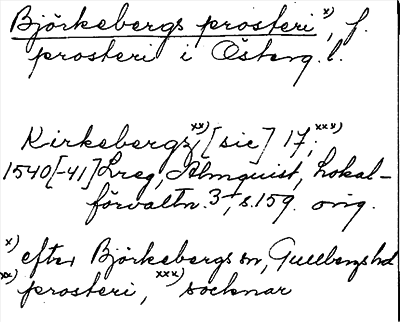 Björkebergs prosteri x), f.
prosteri i Österg. l.
Kirkebergz xx) [sic] 17; xxx)
1540[-41] Lreg, Almquist, Lokal-
förvaltn. 3:1, s. 159. orig.
x) efter Björkebergs sn, Gullbergs hd
xx) prosteri, xxx) socknar